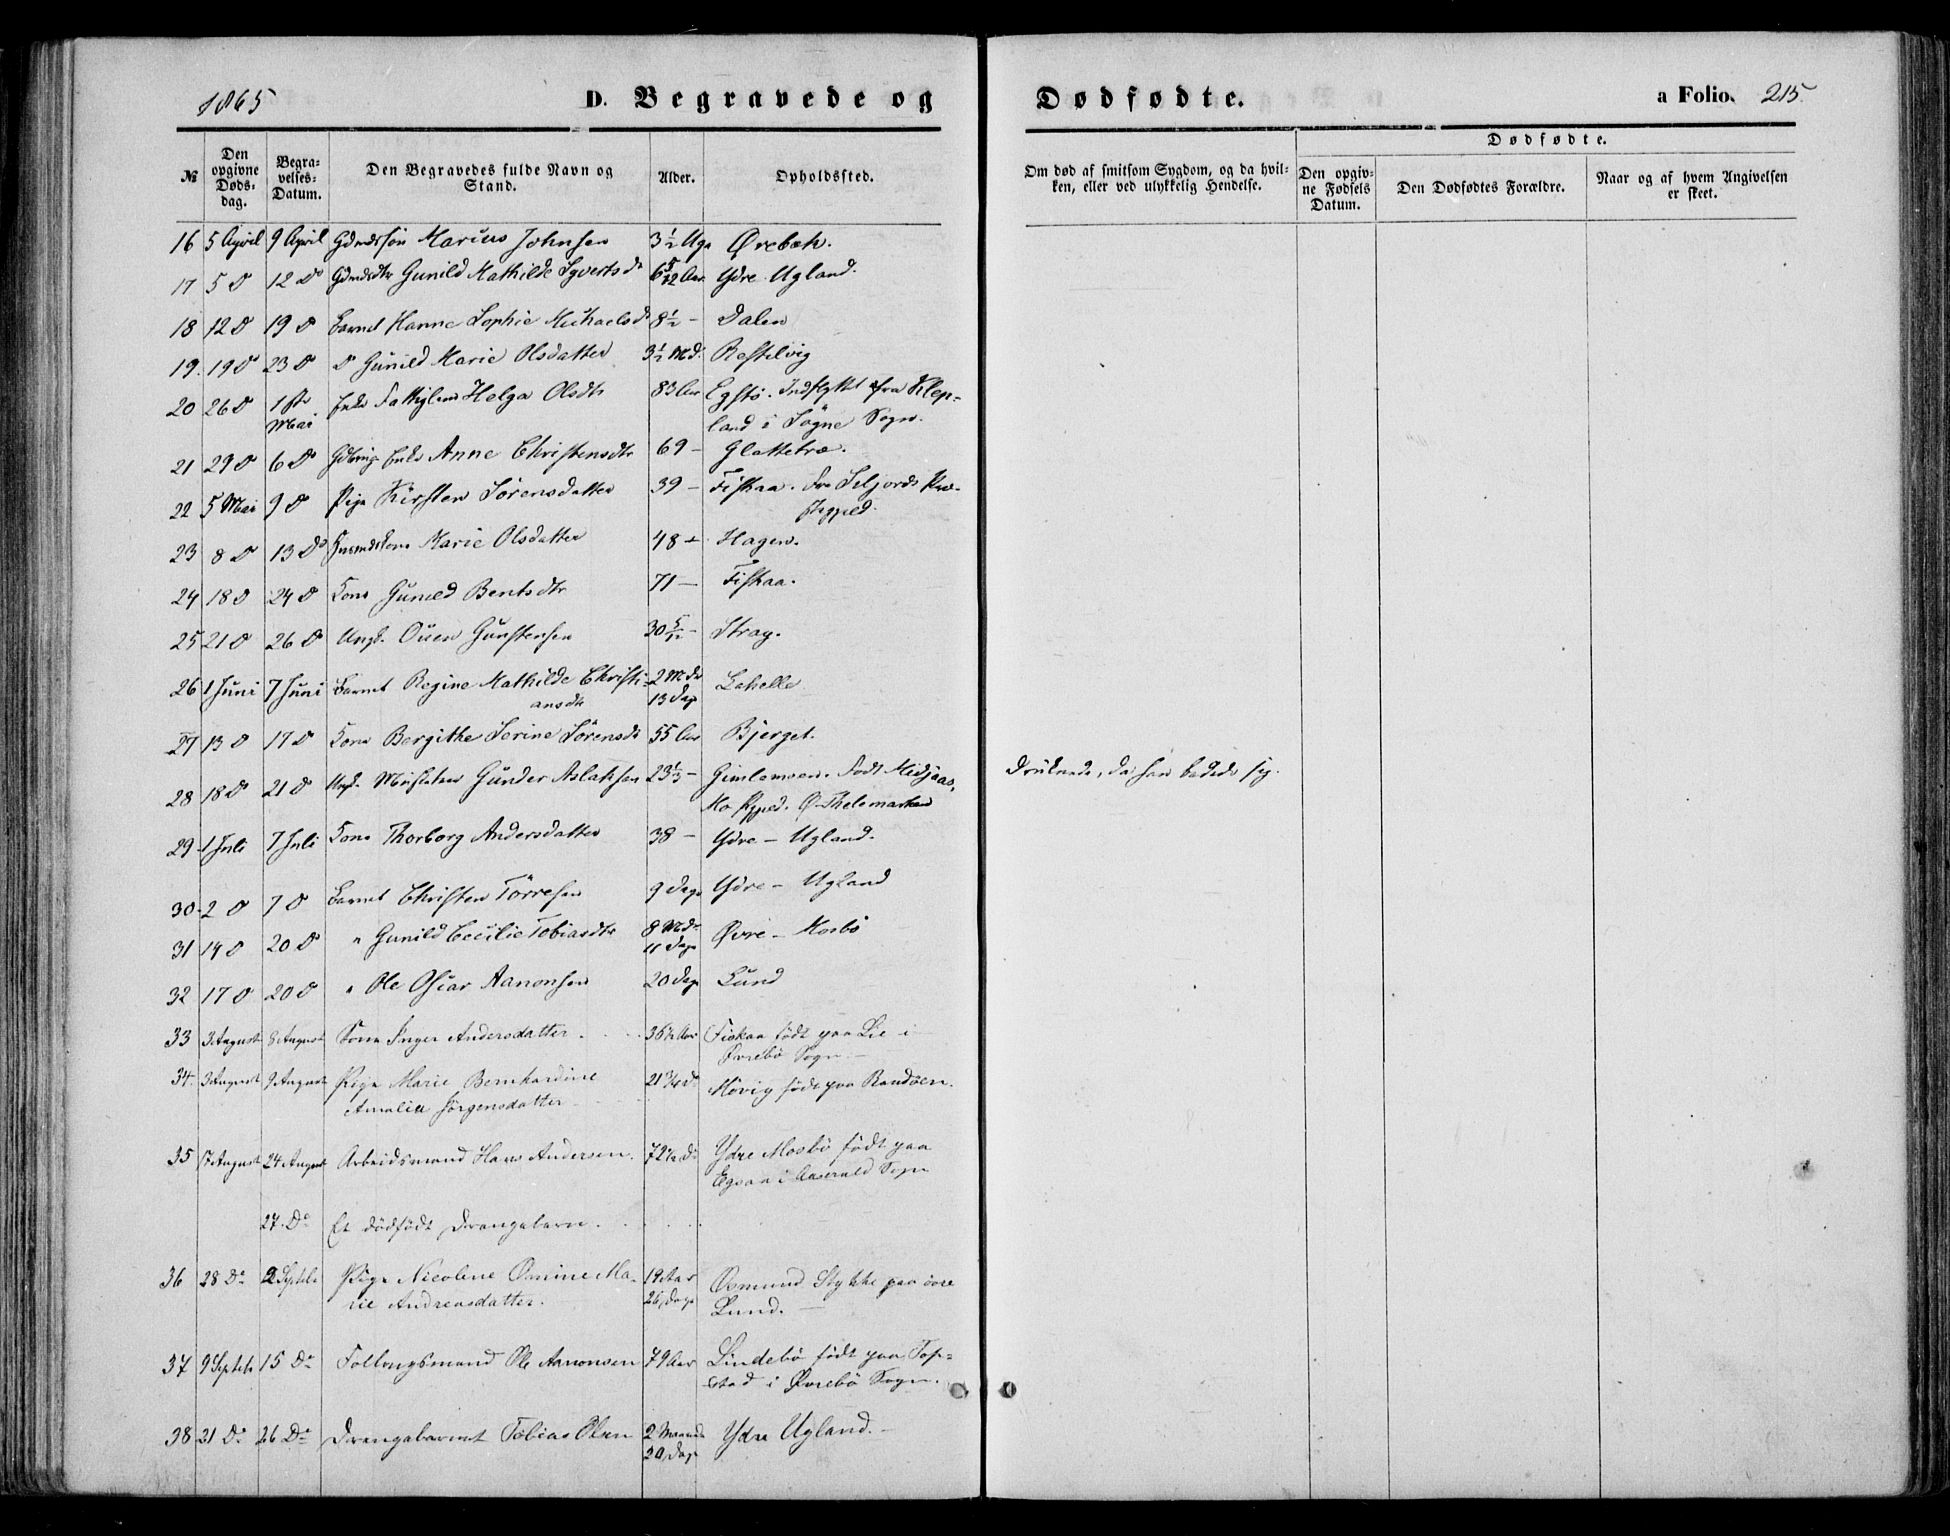 1865
D. Begravede og Dødfødte.
a Folio. 215.
№
Den opgivne Døds-dag.
Begra-velses-Datum.
Den Begravedes fulde Navn og Stand.
Alder.
Opholdssted.
Om død af smitsom Sygdom, og da hvil-ken, eller ved ulykkelig Hendelse.
Dødfødte.
Den opgiv-ne Fødsels Datum.
Den Dødfødtes Forældre.
Naar og af hvem Angivelsen er skeet.
16 5 April 9 April Gdmdssön Marius Johnsen 3½ Uge Ørebæk.
17 5 D 12 Do Gdmdsdtr Gunild Mathilde Syvertsdr 6 5/12 Aar Ydre Ugland.
18 12 D 19 D Barnet Hanne Sophie Michaelsdr 8½ – Dalen
19. 19 D 23 D D Gunild Marie Olsdatter 3½ Md. Restelvig
20 26 D 1ste Mai Enke Fattiglem Helga Olsdtr 83 Aar Egstö. Indflyttet fra Klep-
land i Sögne Sogn.
21 29 D 6 D Enke Anne Christensdtr 69 – Glattetræ.
22 5 Mai 9 D Pige Kirsten Sörensdatter 39 – Fiskaa. Fra Siljords Præ-
stegjeld.
23 8 D 13 Do Husmdskone Marie Olsdatter 48 – Hagen.
24 18 D 24 D Kone Gunild Bentsdtr 71 – Fiskaa.
25 21 D 26 D Ungk. Ouen Gunstensen 30 5/12 – Strag.
26 1 Juni 7 Juni Barnet Regine Mathilde Christi-
ansdtr 2 Mdr 13 Dage Lahelle
27 13 D 17 D Kone Bergithe Serine Sörensdr 55 Aar Bjerget.
28 18 D 21 D Ungk. Gunder Aslaksen 23⅓ – Gimlemoen. Født Midjaas,
Mo Pgjeld. Ø. Thelemarken
Druknede, da han badede sig.
29 1 Juli 7 Juli Kone Thorborg Andersdatter 38 – Ydre – Ugland.
30 2 D 7 D Barnet Christen Törresen 9 Dage Ydre – Ugland
31 14 D 20 D " Gunild Cecilie Tobiasdtr 8 Mdr 11 Dage Øvre – Mosbö
32 17 D 20 D " Ole Oscar Aanonsen 20 Dage Lund
33 3 August 8 August Kone Inger Andersdatter. 36½ Aar Fiskaa födt paa Lie i
Øvrebö Sogn. –
34. 3 August 9 August Pige Marie Bernhardine
Amalia Jörgensdatter 21¾ Do Mövig födt paa Randöen.
35 17 August 24 August Arbeidsmand Hans Andersen. 72½ Do Ydre Mosbö födt paa
Egsaa i Aaserald Sogn
27. Do Et dödfödt Drengebarn.
36 28 Do 2 Septbr Pige Nicoline Omine Ma-
rie Andreasdatter. 19 Aar 26 Dage Osmund Stykke paa övre
Lund. –
37 9 Septbr 15 Do Follougsmand Ole Aanonsen 79 Aar Lindebö födt paa Top-
stad i Øvrebö Sogn.
38 21 Do 26 Do Drengebarnet Tobias Olsen 2 Maaneder 20 Dage Ydre Ugland. –